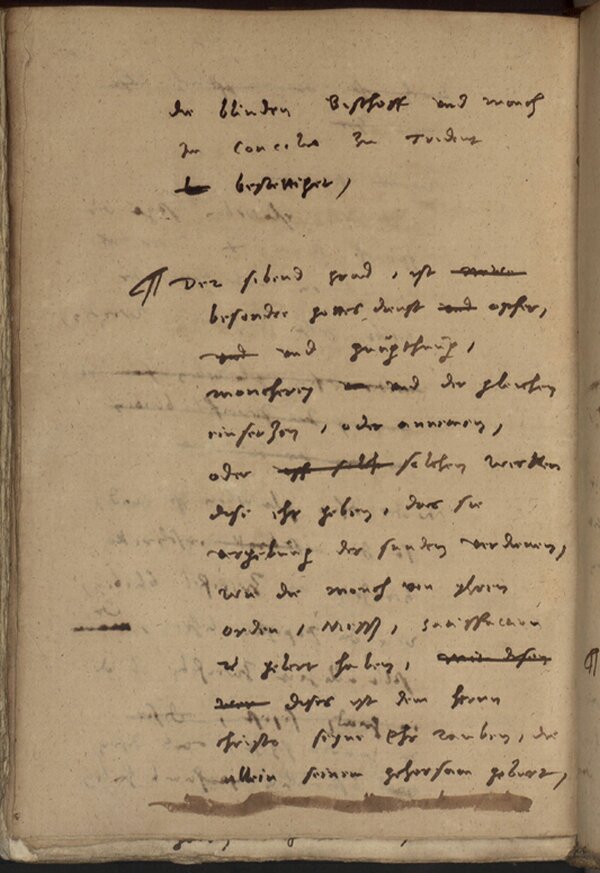 die blinden Bischoff und monch
im Concilio zu Trident
bestettiget,
¶ Der sibend grad, ist
besondre gottes dienst und opfer,
und und
moncherey und der gleichen
einsetzen, oder annemen,
oder solchen wercken
dise ehr geben, das sie
vergebung der sunden verdienen,
wie die monch von yhren
orden, Messz, satisfaction
gelert haben,
dises ist dem herrn
Christo seyne Ehr rauben, die
allein seinem gehorsam geburt,